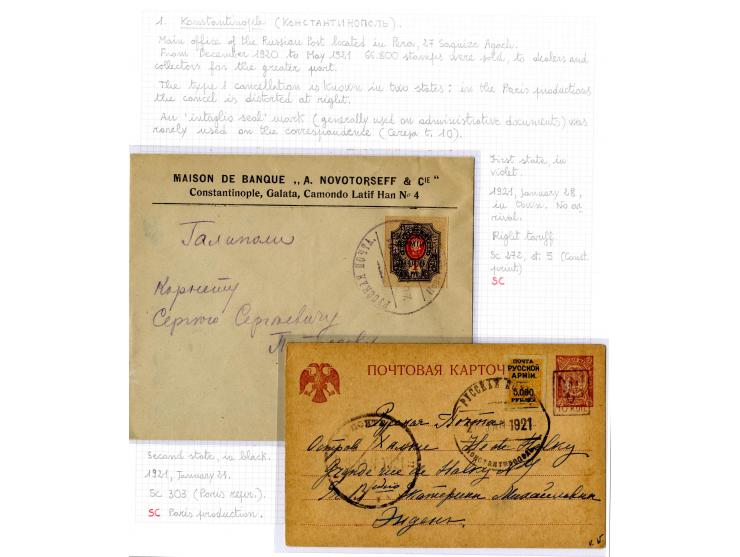 1. Konstantinople (КОНСТАНТИНОПОЛЬ).
Main office of the Russian Post located in Pera, 27 Saquize Agach.
From December 1920 to May 1921 66.800 stamps were sold, to dealers and
collectors for the greater part.
The type 1 cancellation is known in two states: in the Paris productions
the cancel is distorted at right.
An 'intaglio seal' mark (generally used on administrative documents) was
rarely used on the correspondence (Cereja t. 10).
First state, in
violet.
1921, January 28,
in Town. No ar
rival.
Right tariff
Sc 272, st. 5 (Const
print)
SC
MAISON DE BANQUE „A. NOVOTORSEFF & CIE"
Constantinople, Galata, Camondo Latif Han No 4
Галиполи
Корнету
Сергею Сергеевичу
РУССКАЯ ПОЧТА.
ПОЧТОВАЯ КАРТОЧ
ПОЧТА
РУССКОЙ
АРМIИ.
5.000
РУБЛЕЙ
10 КОП
РУССКАЯ
1921
КОНСТАНТИНОПОЛЬ
Русская Почта
Остров Халки Ile de Halky
Grande rue de Halky
Екатерина Михайловна
Энден.
Second state, in black.
1921, January 21.
Sc 303 (Paris repr.).
SC Paris production.